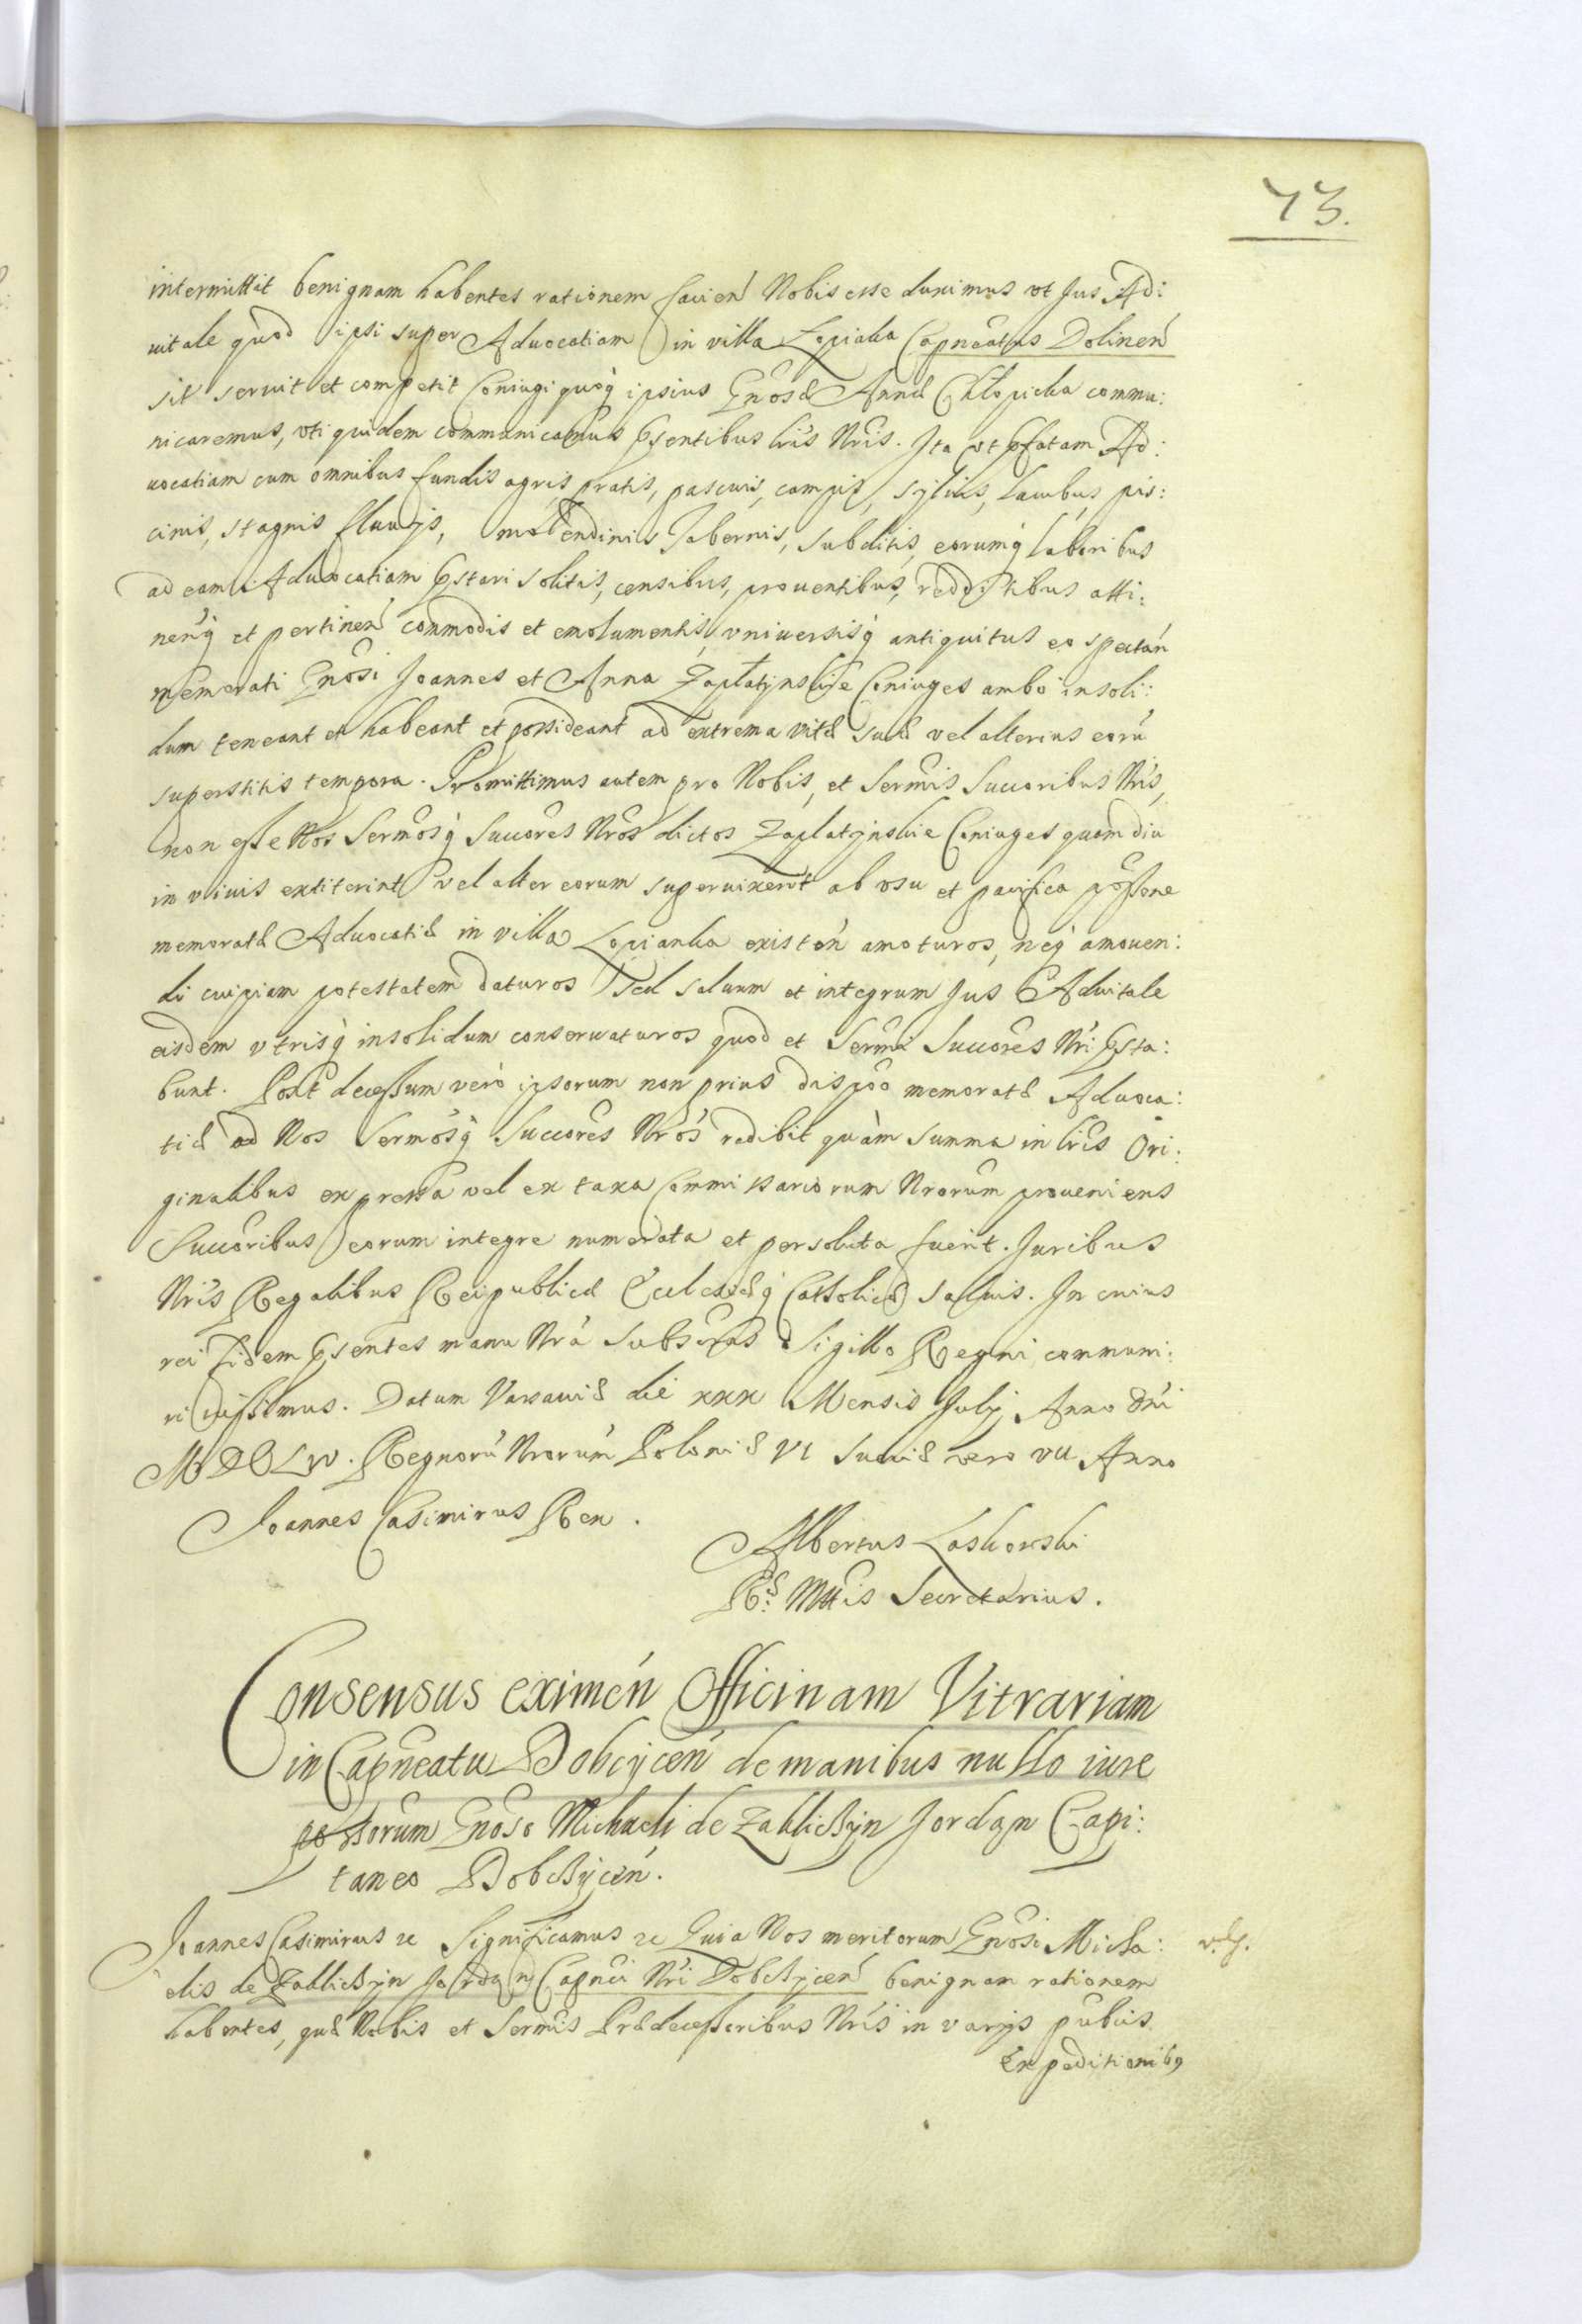 73.
intermittit benignam habentes rationem facien Nobis esse duximus vt Jus Ad:
uitale quod ipsi super Aduocatiam in villa Lopianka Capneatus Dolinen
sit seruit et competit Coniugi quoq ipsius Gnosæ Annæ Chlopicka commu:
nicaremus, vti quidem communicamus Pñsentibus lris Nris. Ita vt Pfatam Ad:
uocatiam cum omnibus fundis agris pratis, pascuis, campis, syluis, lacubus, pis:
cinis, stagnis fluuijs, molendinis Tabernis, subditis, eorumq laboribus
ad eam Aduocatiam Pstari solitis, censibus, prouentibus, redditibus atti:
nenq et pertinen commodis et emolumentis, vniuersisq antiquitus eo spectan
memorati Gnosi Joannes et Anna Zaplatynskie Coniuges ambo insoli:
dum teneant et habeant et possideant ad extrema vitæ suæ vel alterius eorũ
superstitis tempora. Promittimus autem pro Nobis, et Sermis Succoribus Nris,
non esse Nos Sermosq Succores Nros dictos Zaplatynskie Coniuges quam diu
in viuis extiterint vel alter eorum superuixerit ab vsu et pacifica possone
memoratæ Aduocatiæ in villa Lopianka existen amoturos, neq amouen:
di cuipiam potestatem daturos sed saluum et integrum Jus Aduitale
eisdem vtrisq insolidum conseruaturos quod et Sermi Succores Nri Psta:
bunt. Post decessum verò ipsorum non prius dispoo memoratæ Aduoca:
tiæ ad Nos Sermosq Succores Nros redibit quàm summa in lris Ori:
ginalibus expressa vel ex taxa Commissariorum Nrorum proueniens
Succoribus eorum integre numerata et persoluta fuerit. Juribus
Nris Regalibus Reipublicæ Ecclesiæq Catholicæ saluis. In cuius
rei Fidem Psentes manu Nrâ subscras Sigillo Regni communi:
ri iussimus. Datum Varsauiæ die xxx Mensis Julij Anno Dni
MDCLIV. Regnorũ Nrorum Poloniæ VI Sueciæ vero VII Anno
Joannes Casimirus Rex.
Albertus Laskowski
Ræ: Mttis Secretarius.
Consensus eximen Officinam Vitrariam
in Capneatu Dobcycen de manibus nullo iure
possorum Gnoso Michaeli de Zakliczyn Jordan Capi:
taneo Dobczycen.
Joannes Casimirus &c Significamus &c Quia Nos meritorum Gnosi Micha:
elis de Zakliczyn Jordan Capnei Nri Dobczycen benignam rationem
habentes, quæ Nobis et Sermis Prædecessoribus Nris in varijs pubcis
Expeditionibq